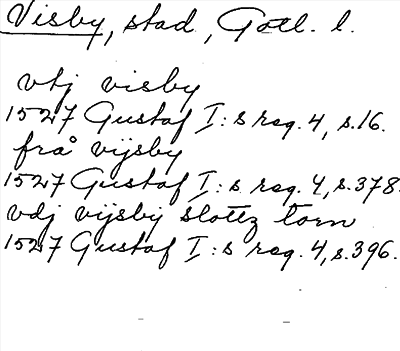 Visby, stad, Gotl. l.
vtj visby
1527 Gustaf I:s reg. 4, s.16.
frå vijsby
1527 Gustaf I:s reg. 4, s.378.
vdj vijsbij slottz torn
1527 Gustaf I:s reg. 4, s.396.